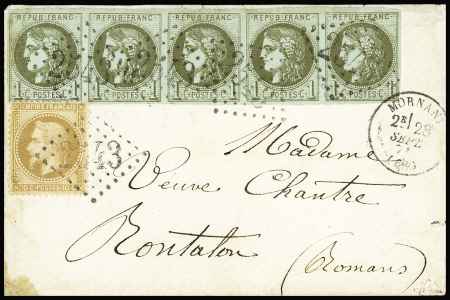 REPUB. FRANC. REPUB. FRANC. REPUB. FRANC. REPUB. FRANC. REPUB. FRANC.
1 POSTES 1 1 POSTES 1 1 POSTES 1 1 POSTES 1 1 POSTES 1
EMPIRE FRANÇAIS
MORNANT
2E/
28
SEPT.
Madame
Veuve Chantre
Rontalon
(Romans)